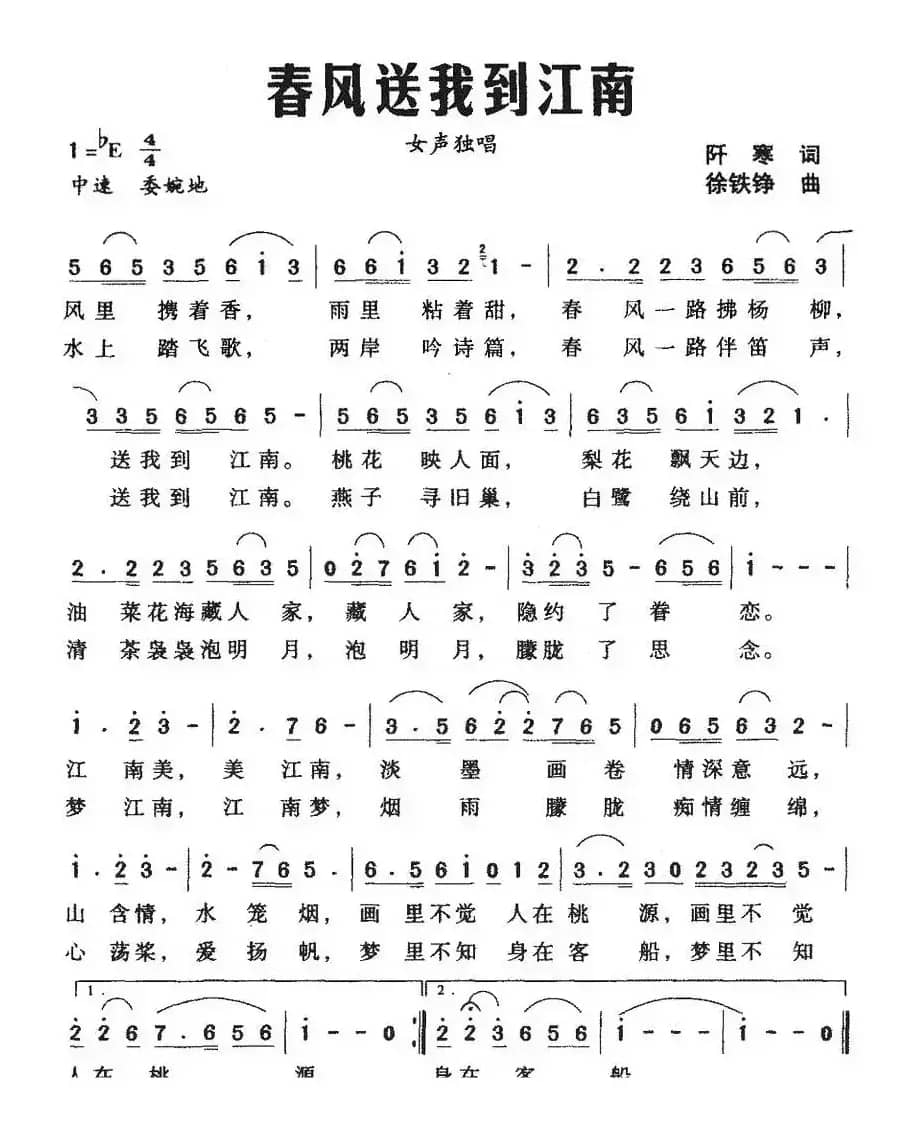 春风送我到江南
女声独唱
1=♭E 4/4
中速 委婉地
阡寒 词
徐铁铮 曲
5 6 5 3 5 6 i 3 | 6 6 i 3 2 2 1 - | 2 . 2 2 3 6 5 6 3 |
风里 携着香， 雨里 粘着甜， 春 风一路拂杨 柳，
水上 踏飞歌， 两岸 吟诗篇， 春 风一路伴笛 声，
3 3 5 6 5 6 5 - | 5 6 5 3 5 6 i 3 | 6 3 5 6 i 3 2 1 .
送我到 江南。 桃花 映人面， 梨花 飘天边，
送我到 江南。 燕子 寻旧巢， 白鹭 绕山前，
2 . 2 2 3 5 6 3 5 | 0 2 7 6 i 2 - | 3 2 3 5 - 6 5 6 | i - - -
油 菜花海藏人 家， 藏 人 家， 隐约 了 眷 恋。
清 茶袅袅泡明 月， 泡 明 月， 朦胧 了 思 念。
i . 2 3 - | 2 . 7 6 - | 3 . 5 6 2 2 7 6 5 | 0 6 5 6 3 2 -
江 南美， 美 江南， 淡 墨 画 卷 情深意 远，
梦 江南， 江 南梦， 烟 雨 朦 胧 痴情缠 绵，
i . 2 3 - | 2 - 7 6 5 . | 6 . 5 6 i 0 1 2 | 3 . 2 3 0 2 3 2 3 5 -
山 含情， 水 笼 烟， 画 里不觉 人在 桃 源， 画里 不 觉
心 荡桨， 爱 扬 帆， 梦 里不知 身在 客 船， 梦里 不 知
1. 2.
2 2 6 7 . 6 5 6 | i - - 0 :| 2 2 3 6 5 6 | i - - - i - 0 |
人在 桃 源 身在 客 船